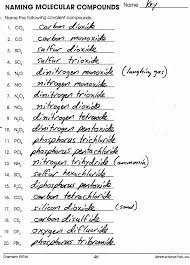 NAMING MOLECULAR COMPOUNDS Name Key
Name the following covalent compounds.
1. CO₂ carbon dioxide
2. CO carbon monoxide
3. SO₂ sulfur dioxide
4. SO₃ sulfur trioxide
5. N₂O dinitrogen monoxide (laughing gas)
6. NO nitrogen monoxide
7. N₂O₃ dinitrogen trioxide
8. NO₂ nitrogen dioxide
9. N₂O₄ dinitrogen tetroxide
10. N₂O₅ dinitrogen pentoxide
11. PCl₃ phosphorus trichloride
12. PCl₅ phosphorus pentachloride
13. NH₃ nitrogen trihydride (ammonia)
14. SCl₆ sulfur hexachloride
15. P₂O₅ diphosphorus pentoxide
16. CCl₄ carbon tetrachloride
17. SiO₂ silicon dioxide (sand)
18. CS₂ carbon disulfide
19. OF₂ oxygen difluoride
20. PBr₃ phosphorus tribromide
Chemistry 46